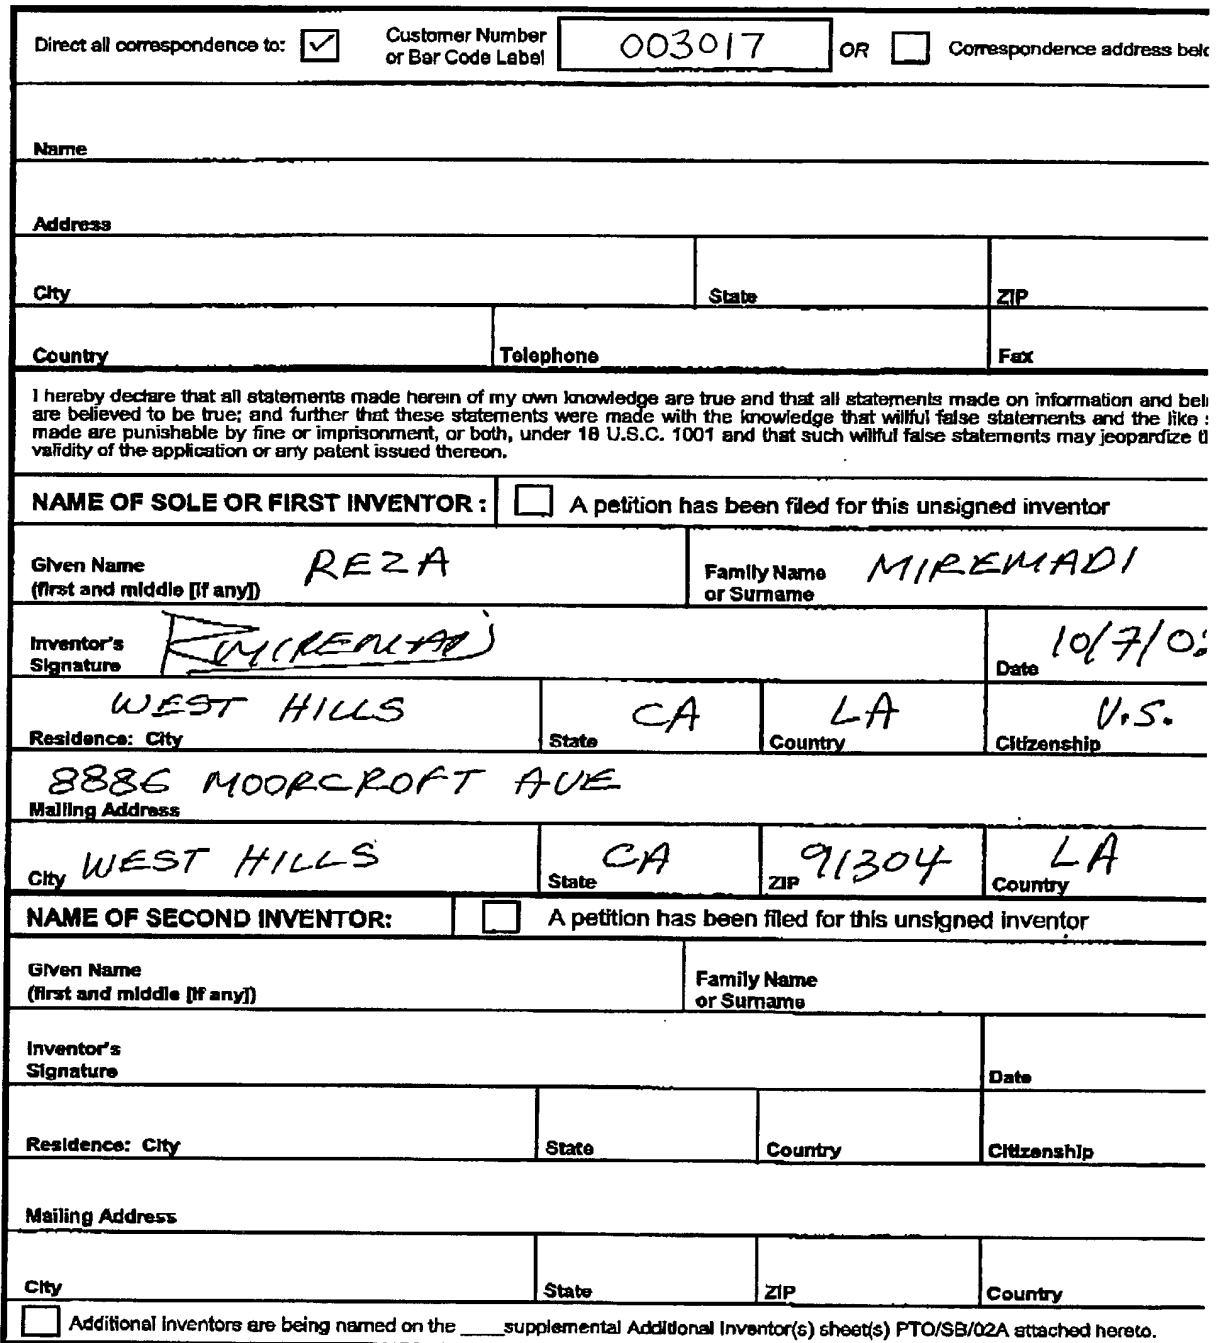 Direct all correspondence to: Customer Number or Bar Code Label 003017 OR Correspondence address
Name
Address
City State ZIP
Country Telephone Fax
I hereby declare that all statements made herein of my own knowledge are true and that all statements made on information and
are believed to be true; and further that these statements were made with the knowledge that willful false statements and the like
made are punishable by fine or imprisonment, or both, under 18 U.S.C. 1001 and that such willful false statements may jeopardize
validity of the application or any patent issued thereon.
NAME OF SOLE OR FIRST INVENTOR : A petition has been filed for this unsigned inventor
Given Name (first and middle [if any]) REZA Family Name or Surname MIREMADI
Inventor's Signature MIREMADI Date 10/7/0
WEST HILLS CA LA U.S.
Residence: City State Country Citizenship
8886 MOORCROFT AVE
Mailing Address
City WEST HILLS State CA ZIP 91304 Country LA
NAME OF SECOND INVENTOR: A petition has been filed for this unsigned inventor
Given Name (first and middle [if any]) Family Name or Surname
Inventor's Signature Date
Residence: City State Country Citizenship
Mailing Address
City State ZIP Country
Additional inventors are being named on the ____supplemental Additional Inventor(s) sheet(s) PTO/SB/02A attached hereto.